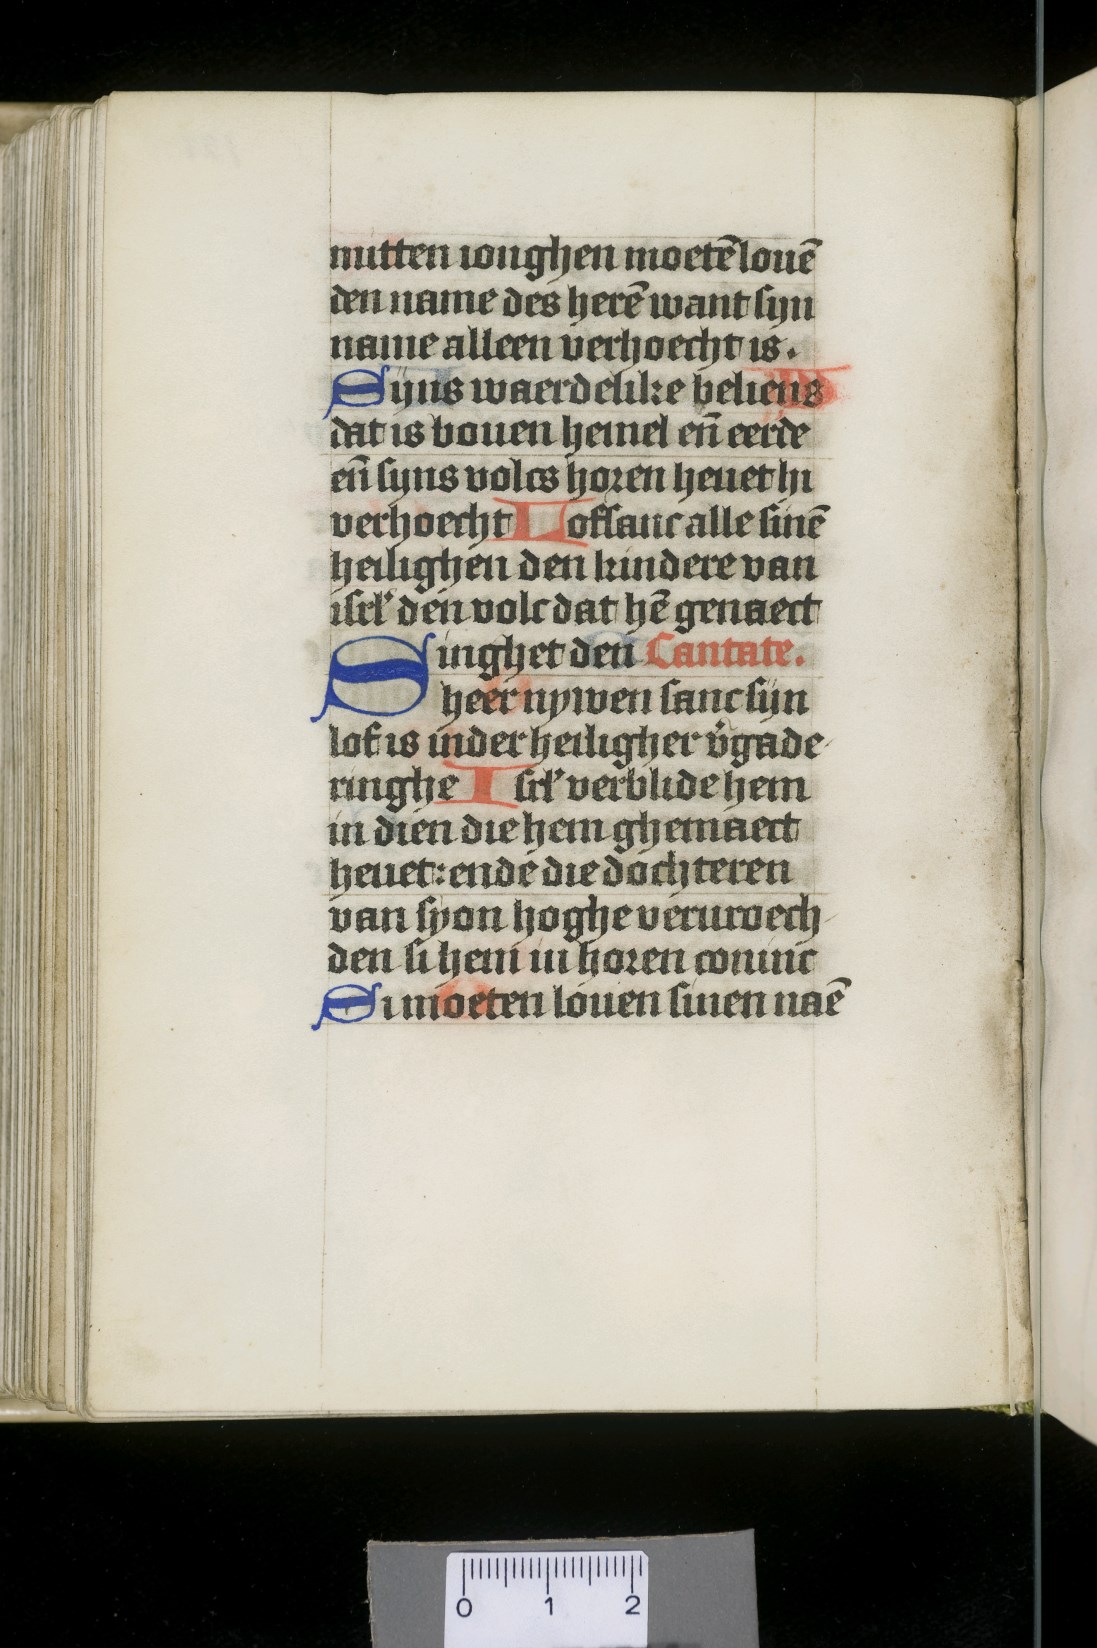 mitten ionghen moetē louē
den name des herē want sijn
name alleen verhoecht is.
Sijns waerdelike beliens
dat is bouen hemel eñ eerde
eñ sijns volcs horen heuet hi
verhoecht Lofsanc alle sinē
heilighen den kindere van
isrl' den volc dat hē genaect
Singhet den Cantate.
heer nywen sanc sijn
lof is in der heiligher v̄gade
ringhe Isrl' verblide hem
in dien die hem ghemaect
heuet: ende die dochteren
van syon hoghe veruroech
den si hem in horen coninc
Si moeten louen sinen naē
0 1 2